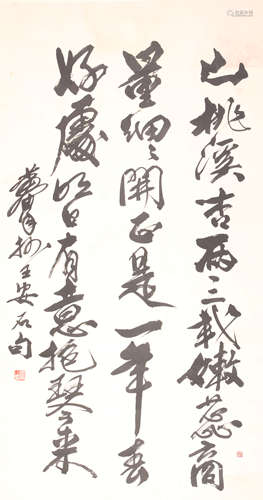 山桃溪杏兩三栽嫩蕊商
量細々開正是一年春
好處明日有意抱琴來
抄王安石句